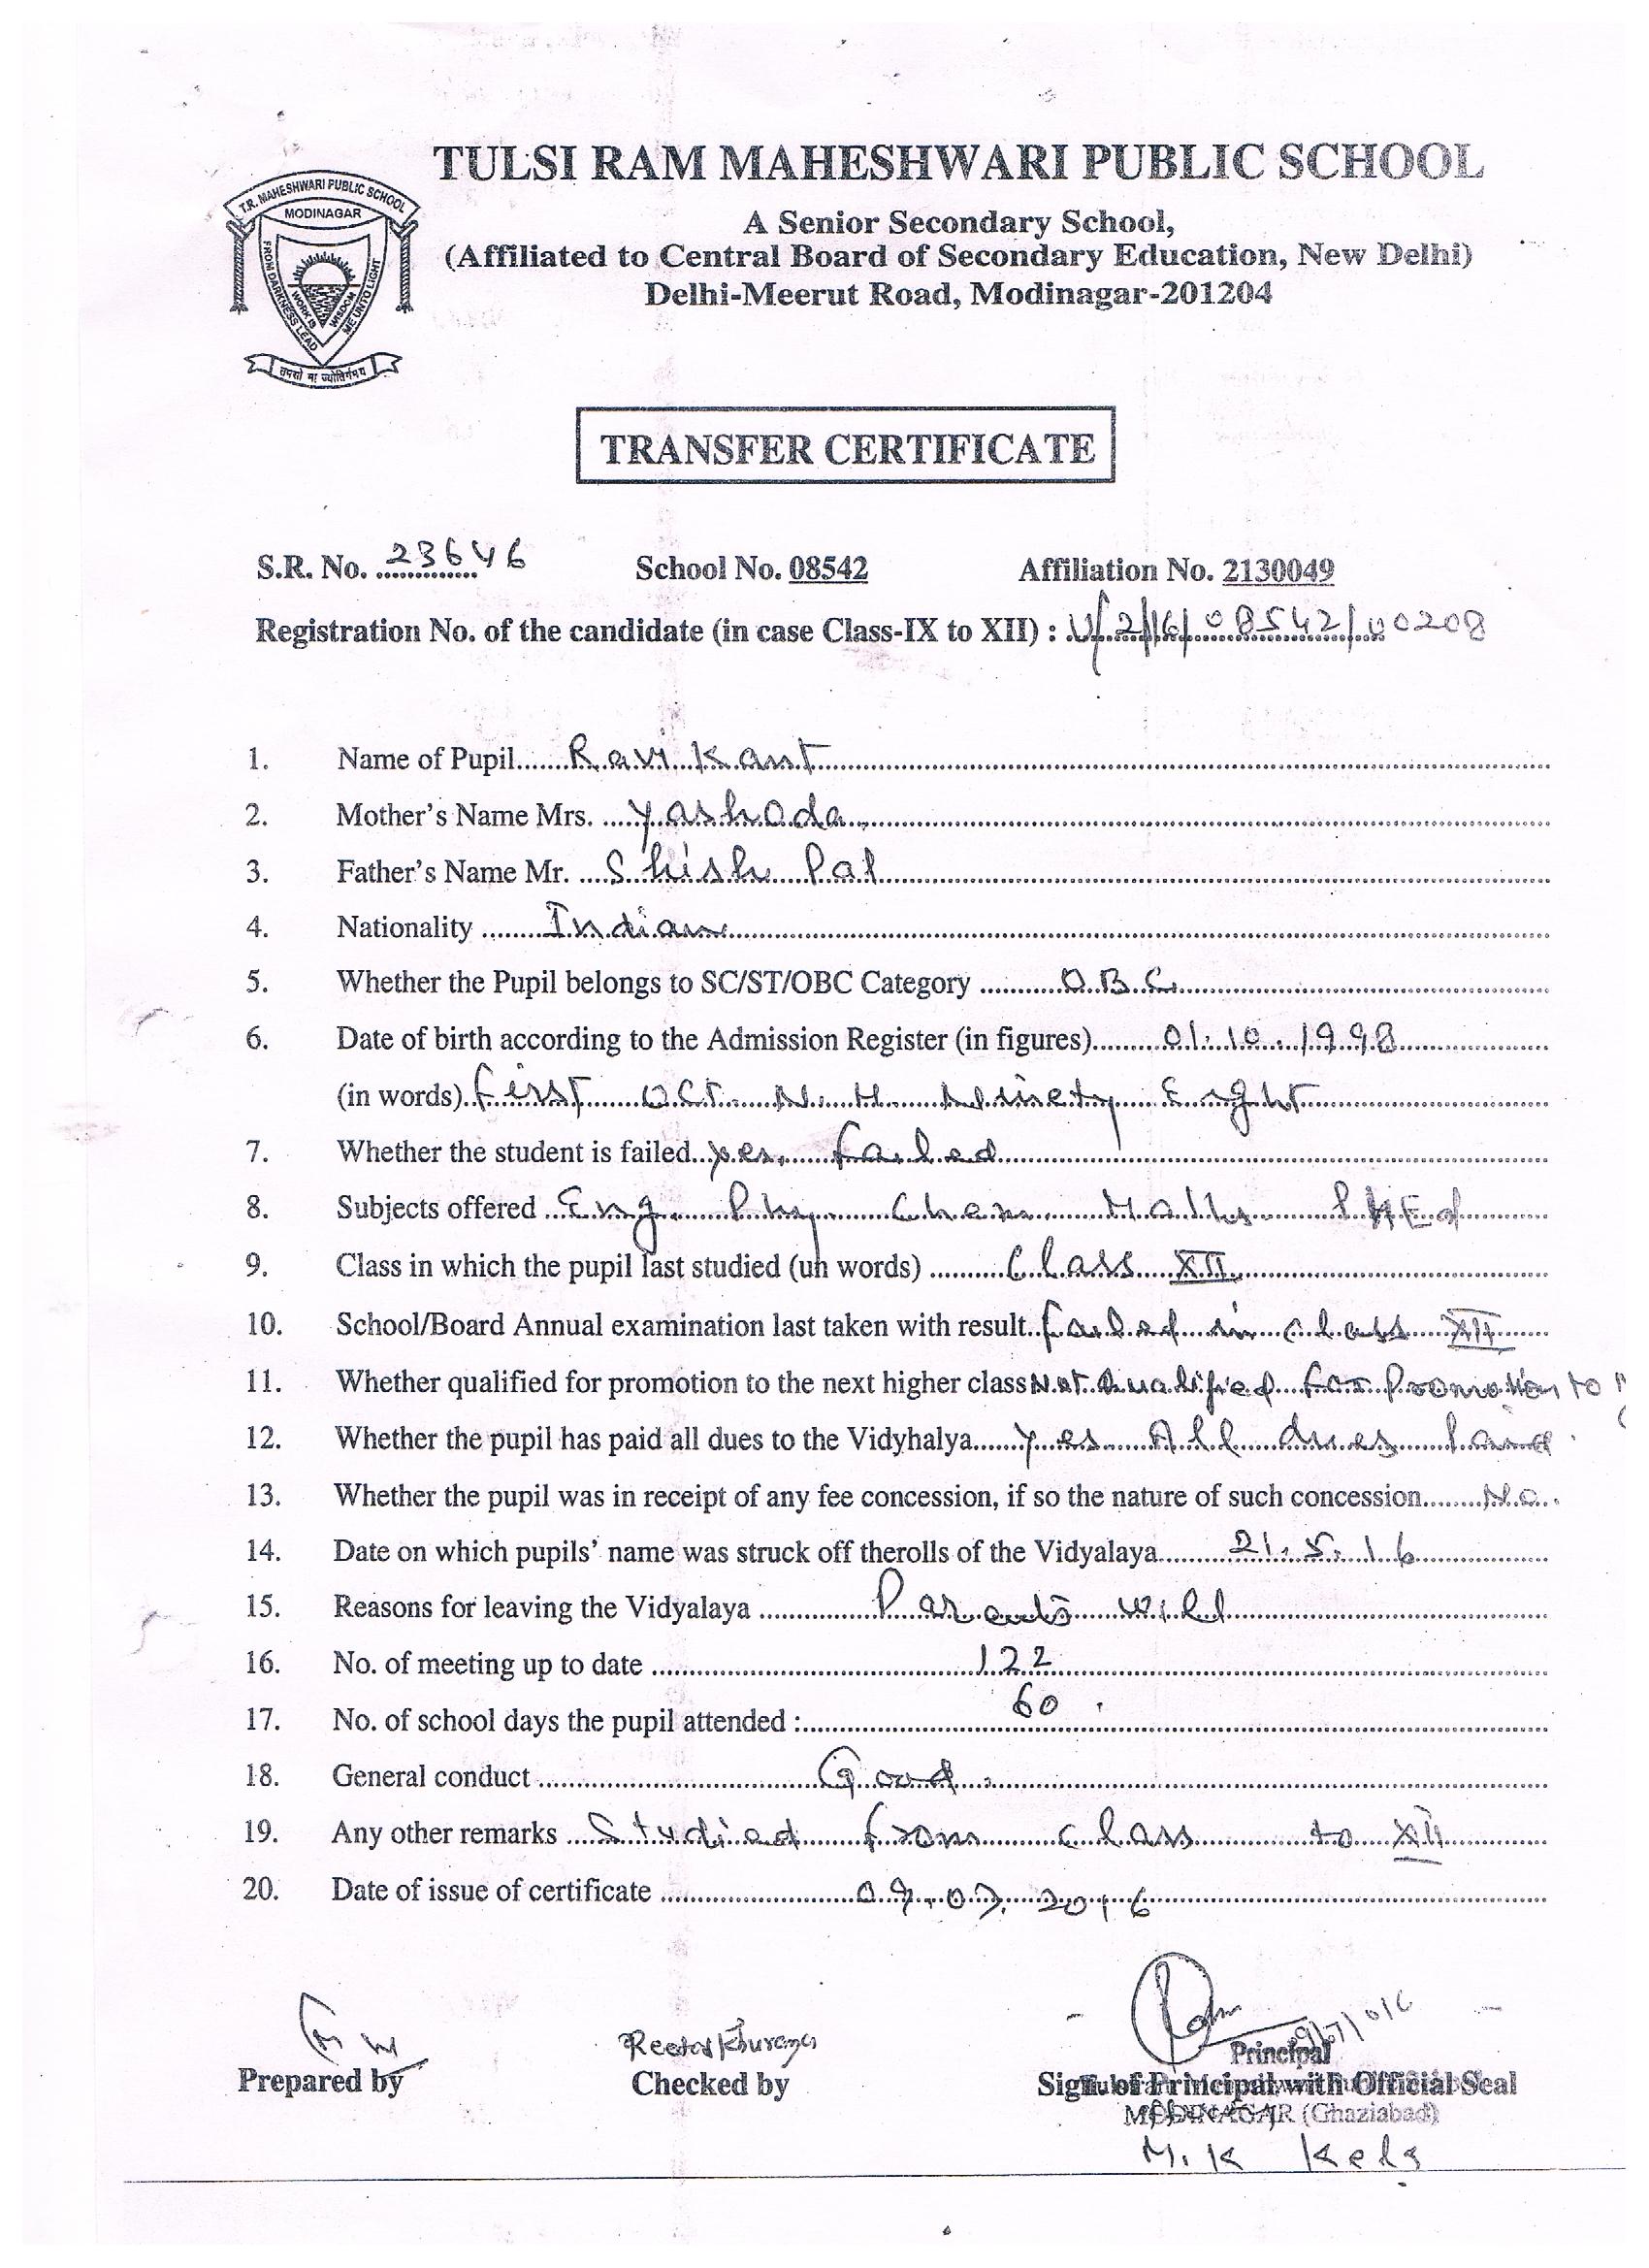 T.R. MAHESHWARI PUBLIC SCHOOL
MODINAGAR
FROM DARKNESS LEAD
ME UNTO LIGHT
WORK IS
WISDOM
तमसो मा ज्योतिर्गमय
TULSI RAM MAHESHWARI PUBLIC SCHOOL
A Senior Secondary School,
(Affiliated to Central Board of Secondary Education, New Delhi)
Delhi-Meerut Road, Modinagar-201204
TRANSFER CERTIFICATE
S.R. No. 23646 School No. 08542 Affiliation No. 2130049
Registration No. of the candidate (in case Class-IX to XII) : U/2/16/08542/00208
1. Name of Pupil Ravi Kant
2. Mother's Name Mrs. Yashoda
3. Father's Name Mr. Shish Pal
4. Nationality Indian
5. Whether the Pupil belongs to SC/ST/OBC Category O.B.C.
6. Date of birth according to the Admission Register (in figures) 01.10.1998
(in words) First OCT. N. H. Ninety Eight
7. Whether the student is failed yes, Failed
8. Subjects offered Eng. Phy. Chem. Maths PHEd
9. Class in which the pupil last studied (un words) Class XII
10. School/Board Annual examination last taken with result Failed in class XII
11. Whether qualified for promotion to the next higher class Not Qualified For Promotion to
12. Whether the pupil has paid all dues to the Vidyhalya Yes All dues Paid.
13. Whether the pupil was in receipt of any fee concession, if so the nature of such concession No.
14. Date on which pupils' name was struck off therolls of the Vidyalaya 21.5.16
15. Reasons for leaving the Vidyalaya Parents will
16. No. of meeting up to date 122
17. No. of school days the pupil attended : 60
18. General conduct Good
19. Any other remarks Studied from class to XII
20. Date of issue of certificate 09.07.2016
Reeta Khurana
Principal
Prepared by Checked by Sign of Principal with Official Seal
MODINAGAR (Ghaziabad)
M.K